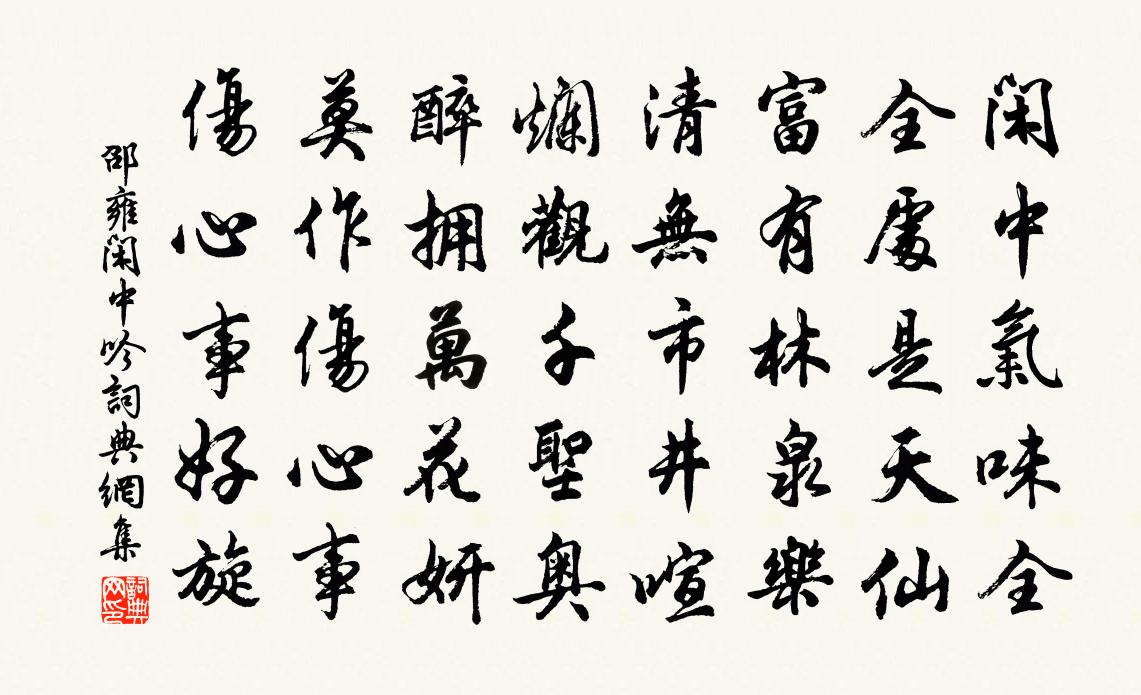 閑中氣味全
全處是天仙
富有林泉樂
清無市井喧
爛觀千聖奥
醉擁萬花妍
莫作傷心事
傷心事好旋
邵雍閑中吟詞典網集
詞典網印